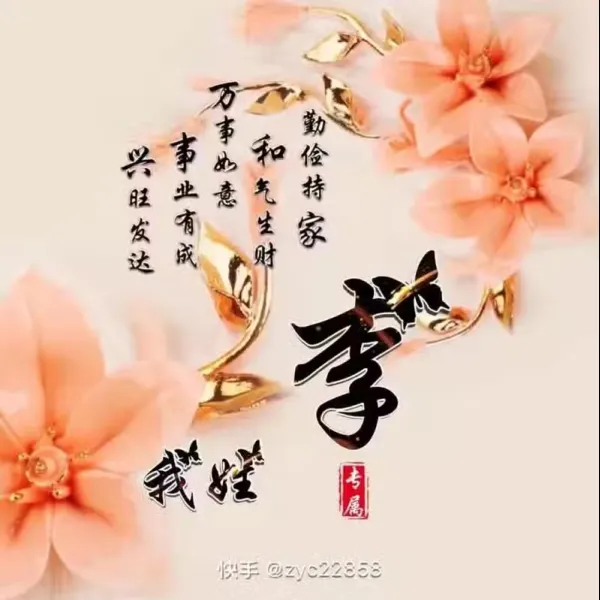 勤俭持家
和气生财
万事如意
事业有成
兴旺发达
我姓
李
专属
快手 @zyc22858